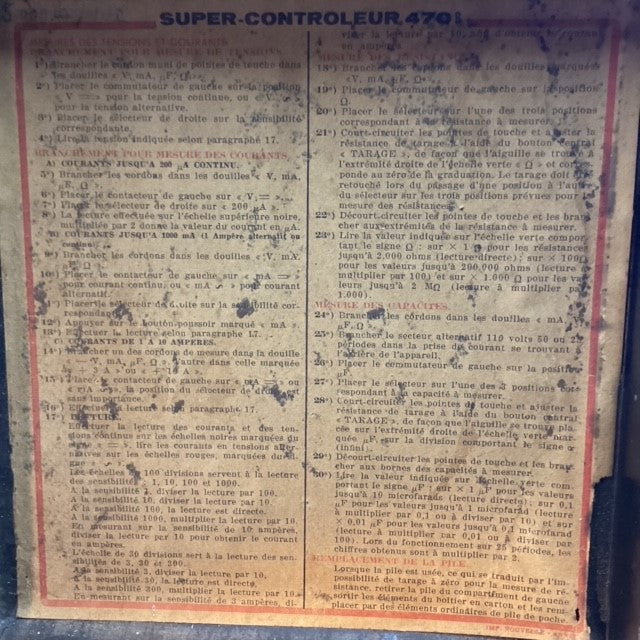 SUPER-CONTROLEUR 470
MESURES DES TENSIONS ET COURANTS
BRANCHEMENT POUR MESURE DE TENSIONS.
1°) Brancher le cordon muni de pointes de touche dans
les douilles « V, mA, µF, Ω ».
2°) Placer le commutateur de gauche sur la position
« V = » pour la tension continue, ou « V ∿ »
pour la tension alternative.
3°) Placer le sélecteur de droite sur la sensibilité
correspondante.
4°) Lire la tension indiquée selon paragraphe 17.
BRANCHEMENT POUR MESURE DES COURANTS.
A) COURANTS JUSQU'A 200 µA CONTINU.
5°) Brancher les cordons dans les douilles « V, mA,
µF, Ω ».
6°) Placer le contacteur de gauche sur « V = ».
7°) Placer le sélecteur de droite sur « 200 µA ».
8°) La lecture effectuée sur l'échelle supérieure noire,
multipliée par 2 donne la valeur du courant en µA.
B) COURANTS JUSQU'A 1000 mA (1 Ampère alternatif ou
continu).
9°) Brancher les cordons dans les douilles « V, mA,
µF, Ω ».
10°) Placer le contacteur de gauche sur « mA = »
pour courant continu, ou « mA ∿ » pour courant
alternatif.
11°) Placer le sélecteur de droite sur la sensibilité cor-
respondante.
12°) Appuyer sur le bouton-poussoir marqué « mA ».
13°) Effectuer la lecture selon paragraphe 17.
C) COURANTS DE 1 A 10 AMPERES.
14°) Brancher un des cordons de mesure dans la douille
« V, mA, µF, Ω », l'autre dans celle marquée
« + 3 A » ou « + 10 A ».
15°) Placer le contacteur de gauche sur « mA = » ou
« mA ∿ », la position du sélecteur de droite
sans importance.
16°) Effectuer la lecture selon paragraphe 17.
17°) LECTURE.
Effectuer la lecture des courants et des ten-
sions continus sur les échelles noires marquées du
signe « = », lire les courants en tensions alter-
natives sur les échelles rouges, marquées du si-
gne « ∿ ».
Les échelles de 100 divisions servent à la lecture
des sensibilités 1, 10, 100 et 1000.
A la sensibilité 1, diviser la lecture par 100.
A la sensibilité 10, diviser la lecture par 10.
A la sensibilité 100, la lecture est directe.
A la sensibilité 1000, multiplier la lecture par 10.
En mesurant sur la sensibilité de 10 ampères,
diviser la lecture par 10 pour obtenir le courant
en ampères.
L'échelle de 30 divisions sert à la lecture des sen-
sibilités de 3, 30 et 300.
A la sensibilité 3, diviser la lecture par 10.
A la sensibilité 30, la lecture est directe.
A la sensibilité 300, multiplier la lecture par 10.
En mesurant sur la sensibilité de 3 ampères, di-
viser la lecture par 10 d'obtenir le courant
en ampères.
MESURE DE
18°) Brancher les cordons dans les douilles marquées
« V, mA, µF, Ω ».
19°) Placer le commutateur de gauche sur la position
Ω.
20°) Placer le sélecteur sur l'une des trois positions
correspondant à la résistance à mesurer.
21°) Court-circuiter les pointes de touche et ajuster la
résistance de tarage à l'aide du bouton central
« TARAGE », de façon que l'aiguille se trouve à
l'extrémité droite de l'échelle verte « Ω » et corres-
ponde au zéro de la graduation. Le tarage doit être
retouché lors du passage d'une position à l'autre
du sélecteur sur les trois positions prévues pour la
mesure des résistances.
22°) Décourt-circuiter les pointes de touche et les bran-
cher aux extrémités de la résistance à mesurer.
23°) Lire la valeur indiquée sur l'échelle verte compor-
tant le signe Ω : sur × 1 Ω pour les résistances
jusqu'à 2.000 ohms (lecture directe) ; sur × 100Ω
pour les valeurs jusqu'à 200.000 ohms (lecture à
multiplier par 100) et sur × 1.000 Ω pour les va-
leurs jusqu'à 2 MΩ (lecture à multiplier par
1.000).
MESURE DES CAPACITES.
24°) Brancher les cordons dans les douilles « mA, V,
µF, Ω ».
25°) Brancher le secteur alternatif 110 volts 50 ou 25
périodes dans la prise de courant se trouvant à
l'arrière de l'appareil.
26°) Placer le commutateur de gauche sur la position
µF.
27°) Placer le sélecteur sur l'une des 3 positions cor-
respondant à la capacité à mesurer.
28°) Court-circuiter les pointes de touche et ajuster la
résistance de tarage à l'aide du bouton central
« TARAGE », de façon que l'aiguille se trouve pla-
cée sur l'extrémité droite de l'échelle verte mar-
quée µF, sur la division comportant le signe ∞
(infini).
29°) Décourt-circuiter les pointes de touche et les bran-
cher aux bornes des capacités à mesurer.
30°) Lire la valeur indiquée sur l'échelle verte com-
portant le signe µF : sur × 1 µF pour les valeurs
jusqu'à 10 microfarads (lecture directe) ; sur 0,1
µF pour les valeurs jusqu'à 1 microfarad (lecture
à multiplier par 0,1 ou à diviser par 10) et sur
× 0,01 µF pour les valeurs jusqu'à 0,1 microfarad
(lecture à multiplier par 0,01 ou à diviser par
100). Lors du fonctionnement sur 25 périodes, les
chiffres obtenus sont à multiplier par 2.
REMPLACEMENT DE LA PILE
Lorsque la pile est usée, ce qui se traduit par l'im-
possibilité de tarage à zéro pour la mesure de ré-
sistance, retirer la pile du compartiment de gauche
sortir les éléments du boîtier en carton et les rem-
placer par des éléments ordinaires de pile de poche